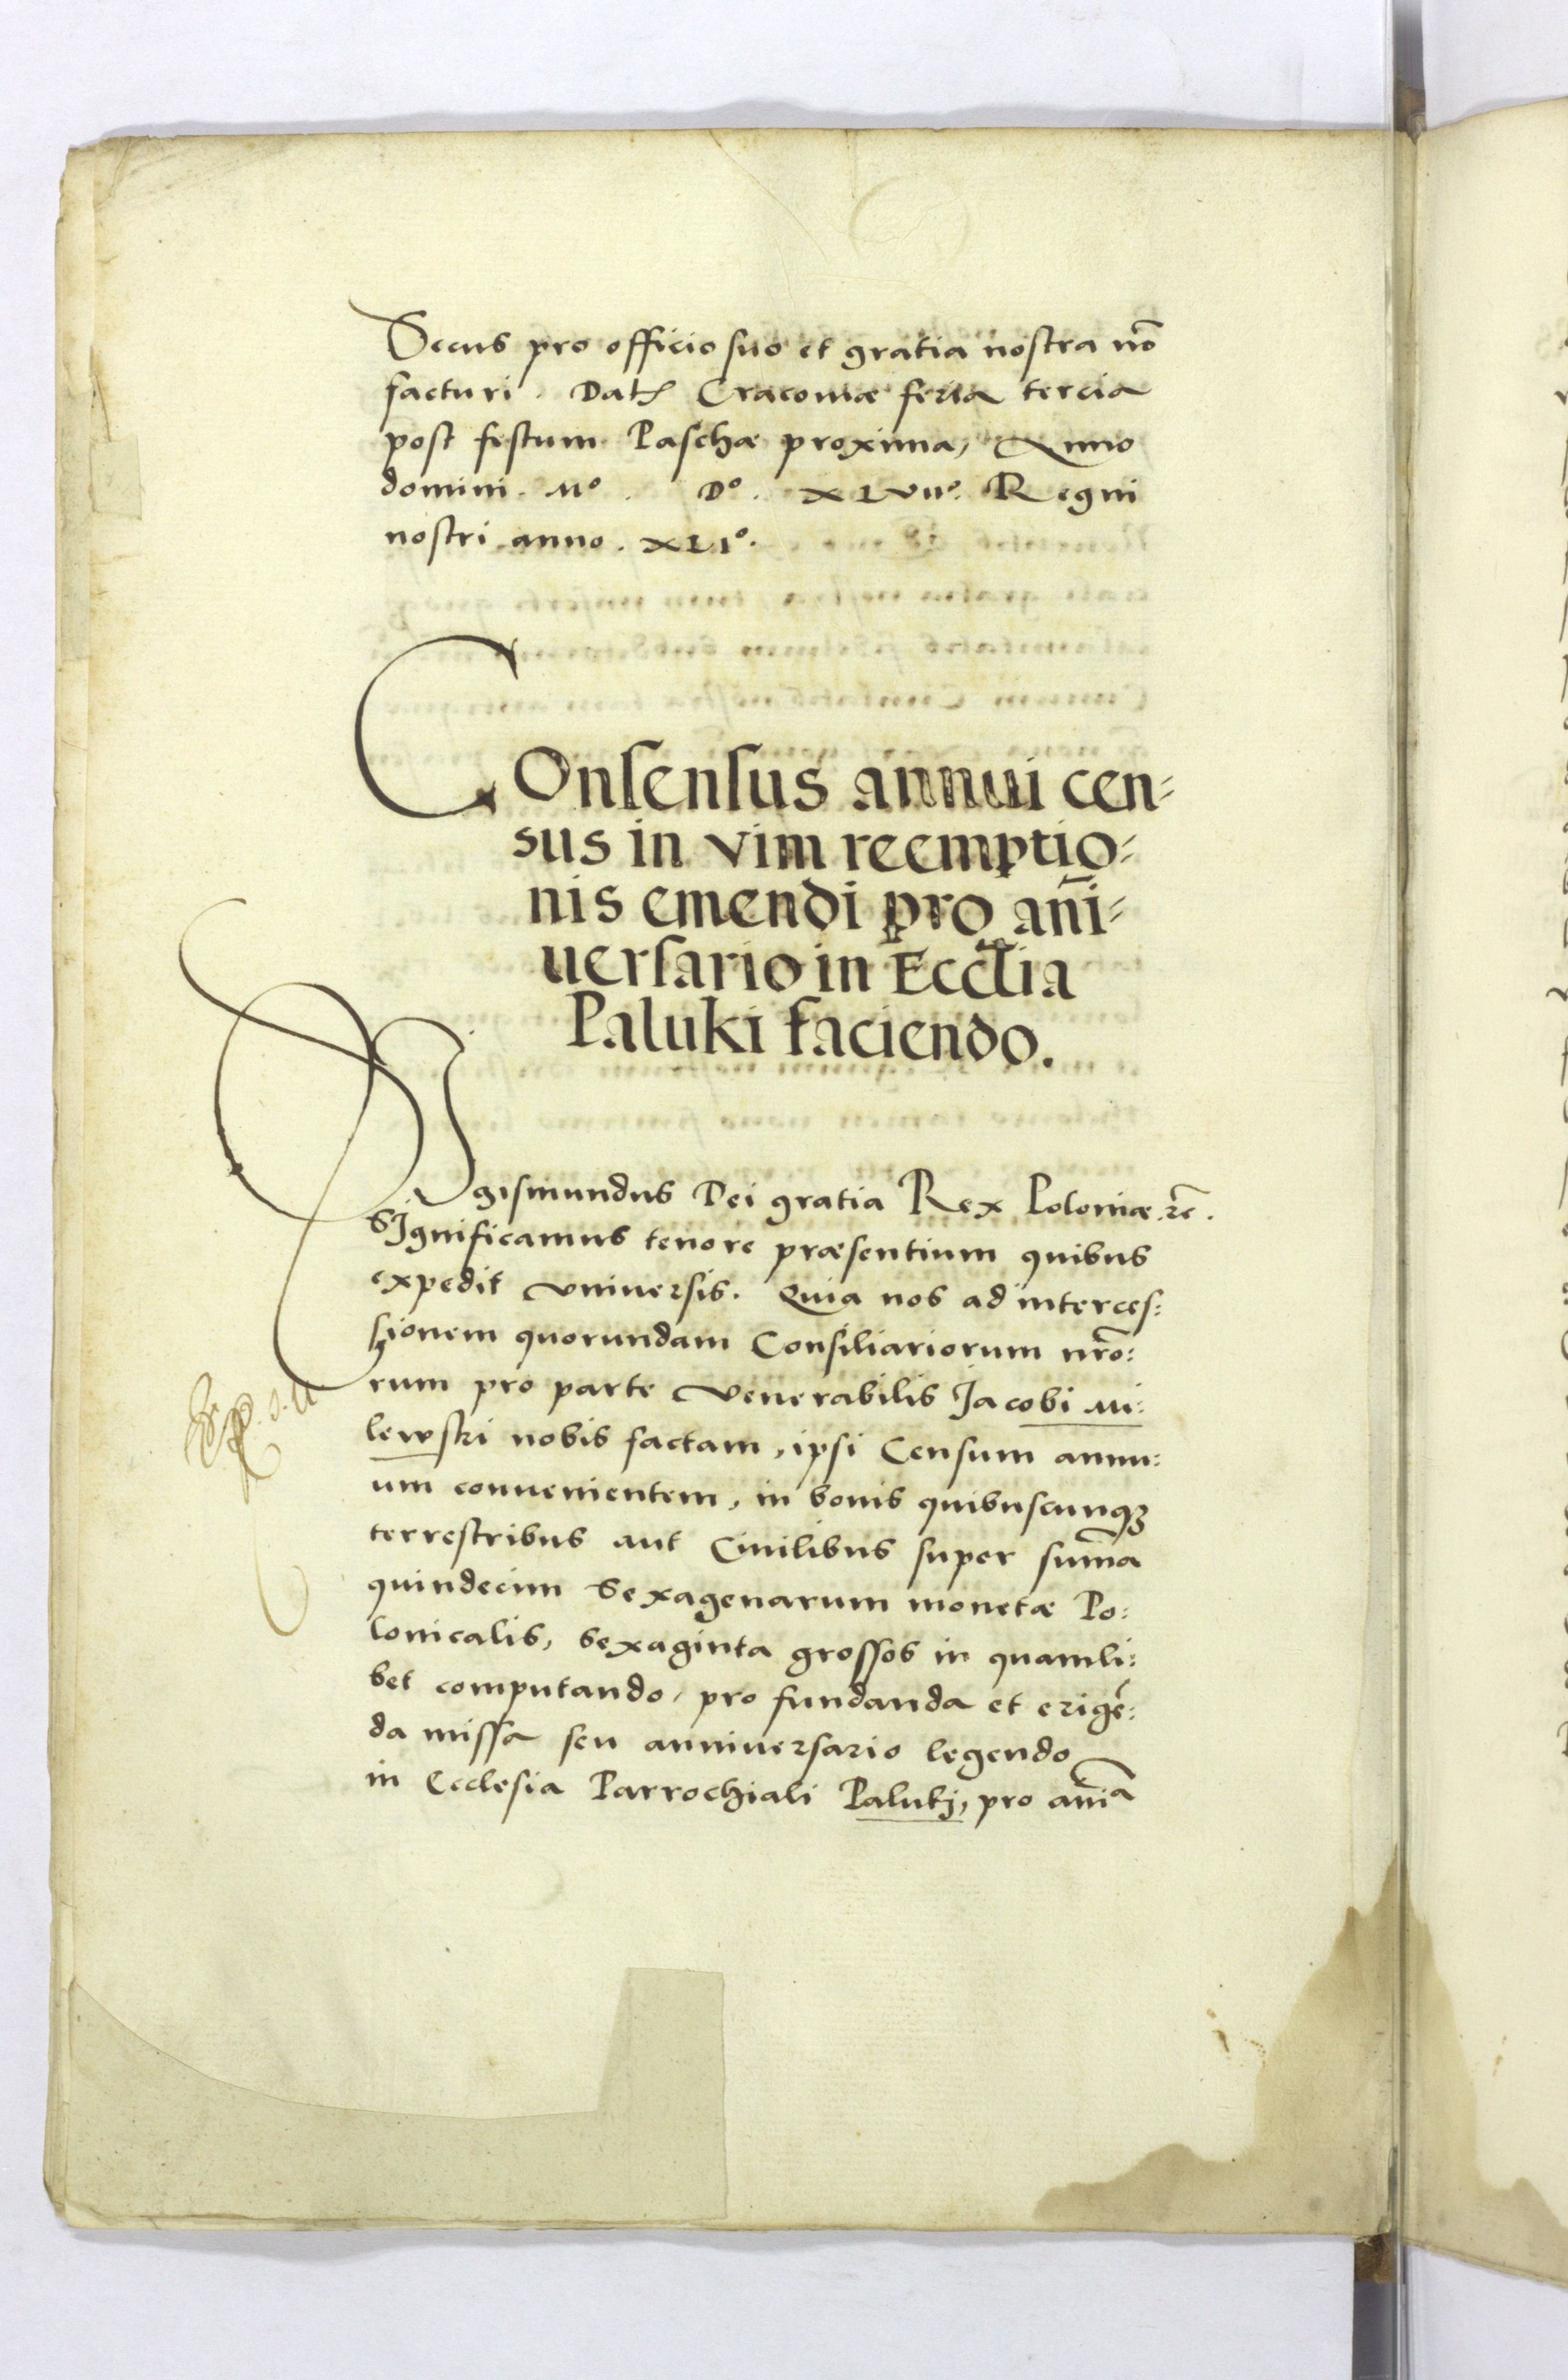 Secus pro officio suo et gratia nostra nō
facturi. Datꝭ Cracoviæ feria tercia
post festum Paschæ proxima, Anno
domini. Mº. Dº. XLVIIº. Regni
nostri anno. XLIº.
COnsensus annui cen=
sus in vim reemptio=
nis emendi pro ani̅=
uersario in Eccl̅ia
Paluki faciendo.
SIgismundus Dei gratia Rex Poloniæ. ꝛc̅.
SIgnificamus tenore præsentium quibus
expedit vniuersis. Quia nos ad interces:
sionem quorundam Consiliariorum nr̅o:
rum pro parte venerabilis Jacobi Mi:
lewski nobis factam, ipsi Censum annu:
um conuenientem, in bonis quibuscunqꝫ
terrestribus aut Ciuilibus super sum̅a
quindecim Sexagenarum monetæ Po:
lonicalis, sexaginta grossos in quamli:
bet computando, pro fundanda et erigē:
da missa seu anniuersario legendo
in Ecclesia Parrochiali Paluki, pro ani̅a